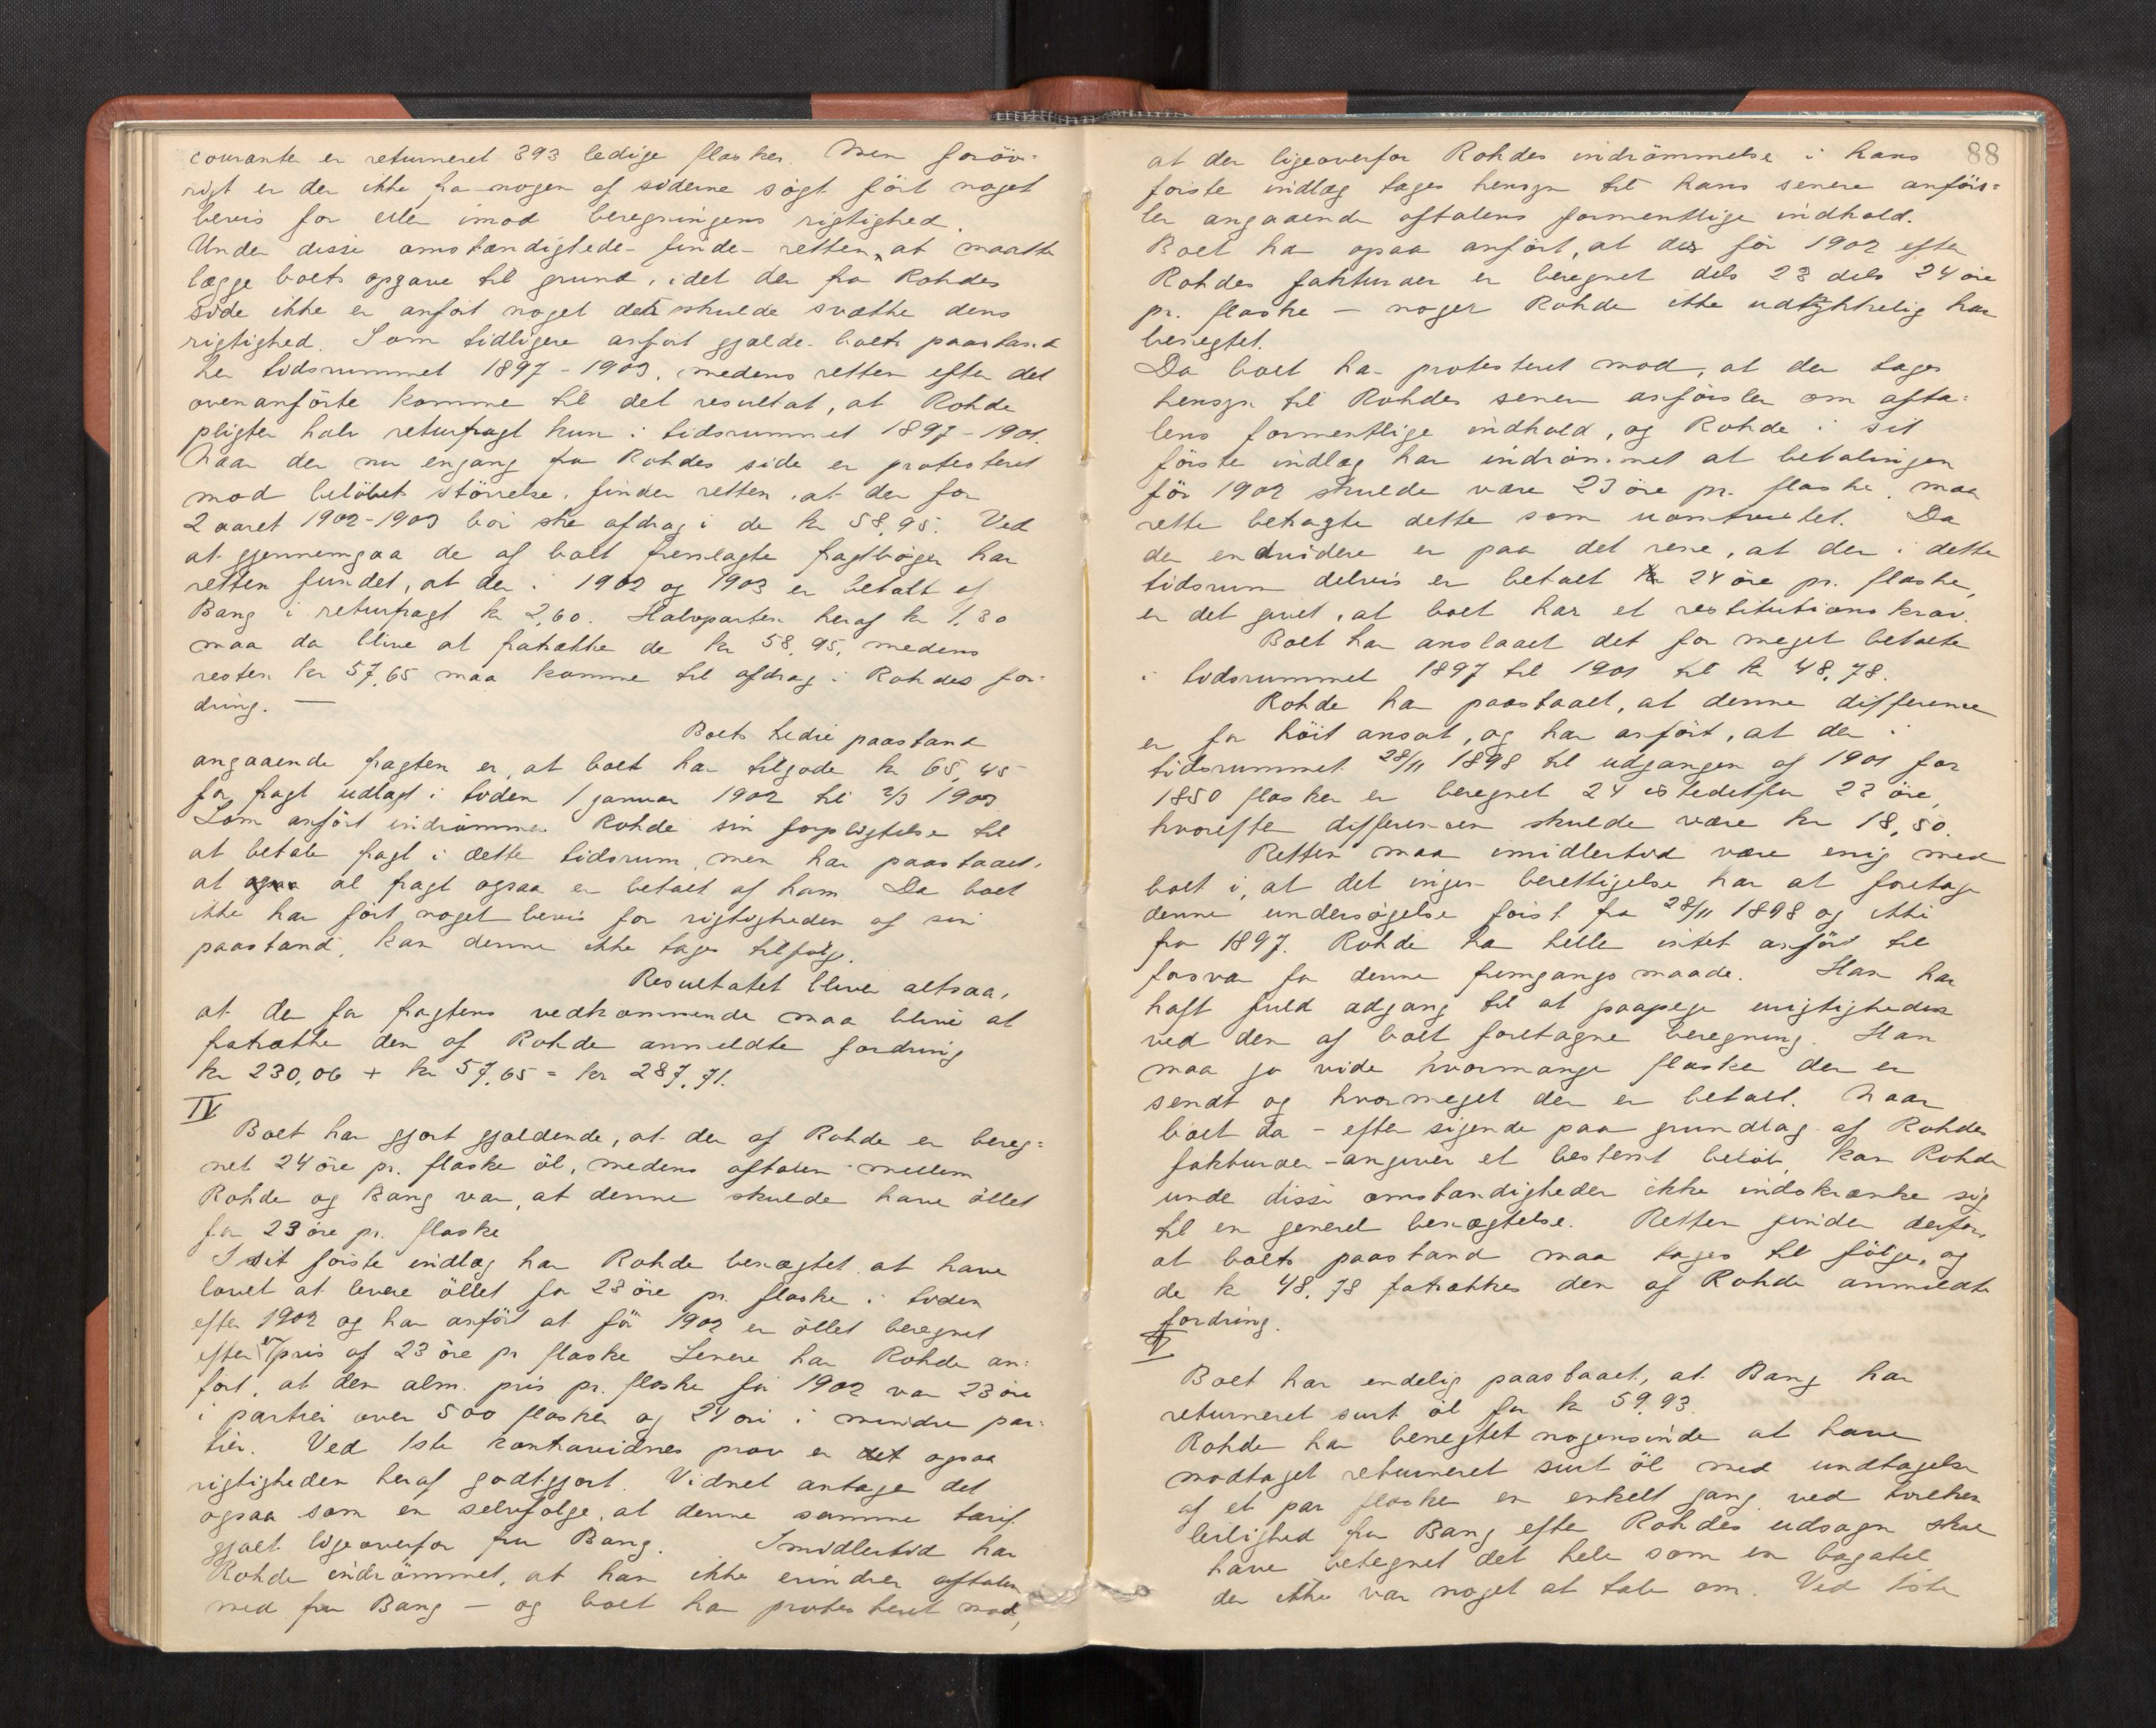 courante er returneret 393 ledige flasker. Men foröv-
rigt er der ikke fra nogen af siderne sögt fört noget
bevis for eller imod beregningens rigtighed.
Under disse omstændigheder finder retten, at maatte
lægge boets opgave til grund, idet der fra Rohdes
side ikke er anfört noget der skulde svække dens
rigtighed. Som tidligere anfört gjælder boets paastand
her tidsrummet 1897-1903, medens retten efter det
ovenanförte kommer til det resultat, at Rohde
pligter halv returfragt kun i tidsrummet 1897-1901.
Naar der nu engang fra Rohdes side er protesteret
mod belöbets störrelse, finder retten, at der for
2 aaret 1902-1903 bör ske afdrag i de kr 58,95. Ved
at gjennemgaa de af boet fremlagte fragtböger har
retten fundet, at der i 1902 og 1903 er betalt af
Bang i returfragt kr 2,60. Halvparten heraf kr 1,30
maa da blive at fratrække de kr 58,95, medens
resten kr 57,65 maa komme til afdrag i Rohdes for-
dring. —
Boets tredie paastand
angaaende fragten er, at boet har tilgode kr 65,45
for fragt udlagt i tiden 1 januar 1902 til 2/3 1903
Som anfört indrömmer Rohde sin forpligtelse til
at betale fragt i dette tidsrum, men har paastaaet,
at al fragt ogsaa er betalt af ham. Da boet
ikke har fört noget bevis for rigtigheden af sin
paastand, kan denne ikke tages tilfölge.
Resultatet bliver altsaa,
at der for fragtens vedkommende maa blive at
fratrække den af Rohde anmeldte fordring
kr 230,06 + kr 57,65 = kr 287,71.
IV
Boet har gjort gjældende, at der af Rohde er bereg=
net 24 öre pr. flaske öl, medens aftalen mellem
Rohde og Bang var, at denne skulde have öllet
for 23 öre pr. flaske
I sit förste indlæg har Rohde benægtet at have
lovet at levere öllet for 23 öre pr. flaske i tiden
efter 1902 og har anfört at för 1902 er öllet beregnet
efter en pris af 23 öre pr flaske Senere har Rohde an=
fört, at den alm. pris pr. flaske för 1902 var 23 öre
i partier over 500 flasker og 24 öre i mindre par=
tier. Ved 1ste kontravidnes prov er det ogsaa
rigtigheden heraf godtgjort. Vidnet antager det
ogsaa som en selvfölge, at denne samme tarif
gjaldt ligeoverfor fru Bang. Imidlertid har
Rohde indrömmet, at han ikke erindrer aftalen
med fru Bang — og boet har protesteret mod,
88
at der ligeoverfor Rohdes indrömmelse i hans
förste indlæg tages hensyn til hans senere anförs=
ler angaaende aftalens formentlige indhold.
Boet har ogsaa anfört, at der för 1902 efter
Rohdes fakturaer er beregnet dels 23 dels 24 öre
pr. flaske — noget Rohde ikke udtrykkelig har
benegtet.
Da boet har protesteret mod, at der tages
hensyn til Rohdes senere anförsler om afta=
lens formentlige indhold, og Rohde i sit
förste indlæg har indrömmet at betalingen
för 1902 skulde være 23 öre pr. flaske, maa
retten betragte dette som uomtvistet. Da
der endvidere er paa det rene, at der i dette
tidsrum delvis er betalt 24 öre pr. flaske,
er det givet, at boet har et restitutionskrav.
Boet har anslaaet det for meget betalte
i tidsrummet 1897 til 1901 til kr 48,78.
Rohde har paastaaet, at denne difference
er for höit ansat, og har anfört, at der i
tidsrummet 28/11 1898 til udgangen af 1901 for
1850 flasker er beregnet 24 istedetfor 23 öre,
hvorefter differencen skulde være kr 18,50.
Retten maa imidlertid være enig med
boet i, at det ingen berettigelse har at foretage
denne undersögelse först fra 28/11 1898 og ikke
fra 1897. Rohde har heller intet anfört til
forsvar for denne fremgangsmaade. Han har
haft fuld adgang til at paapege urigtigheden
ved den af boet foretagne beregning. Han
maa jo vide hvormange flasker der er
sendt og hvormeget der er betalt. Naar
boet da - efter sigende paa grundlag af Rohdes
fakturaer - angiver et bestemt belöb, kan Rohde
under disse omstændigheder ikke indskrænke sig
til en generel benægtelse. Retten finder derfor,
at boets paastand maa tages til fölge, og
de kr 48,78 fratrækkes den af Rohde anmeldte
fordring.
V
Boet har endelig paastaaet, at Bang har
returneret surt öl for kr 59,93.
Rohde har benegtet nogensinde at have
modtaget returneret surt öl med undtagelse
af et par flasker en enkelt gang ved hvilken
leilighed fru Bang efter Rohdes udsagn skal
have betegnet det hele som en bagatel
der ikke var noget at tale om. Ved 1ste